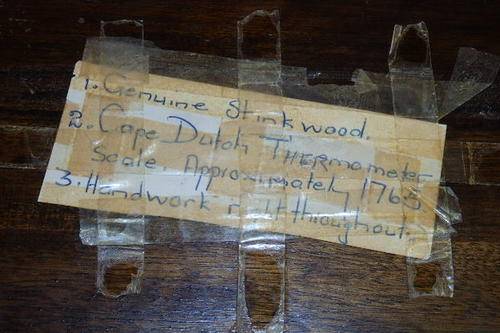 1. Genuine Stinkwood.
2. Cape Dutch THERMOMETER
Scale Approximately 1763
3. Handwork throughout.